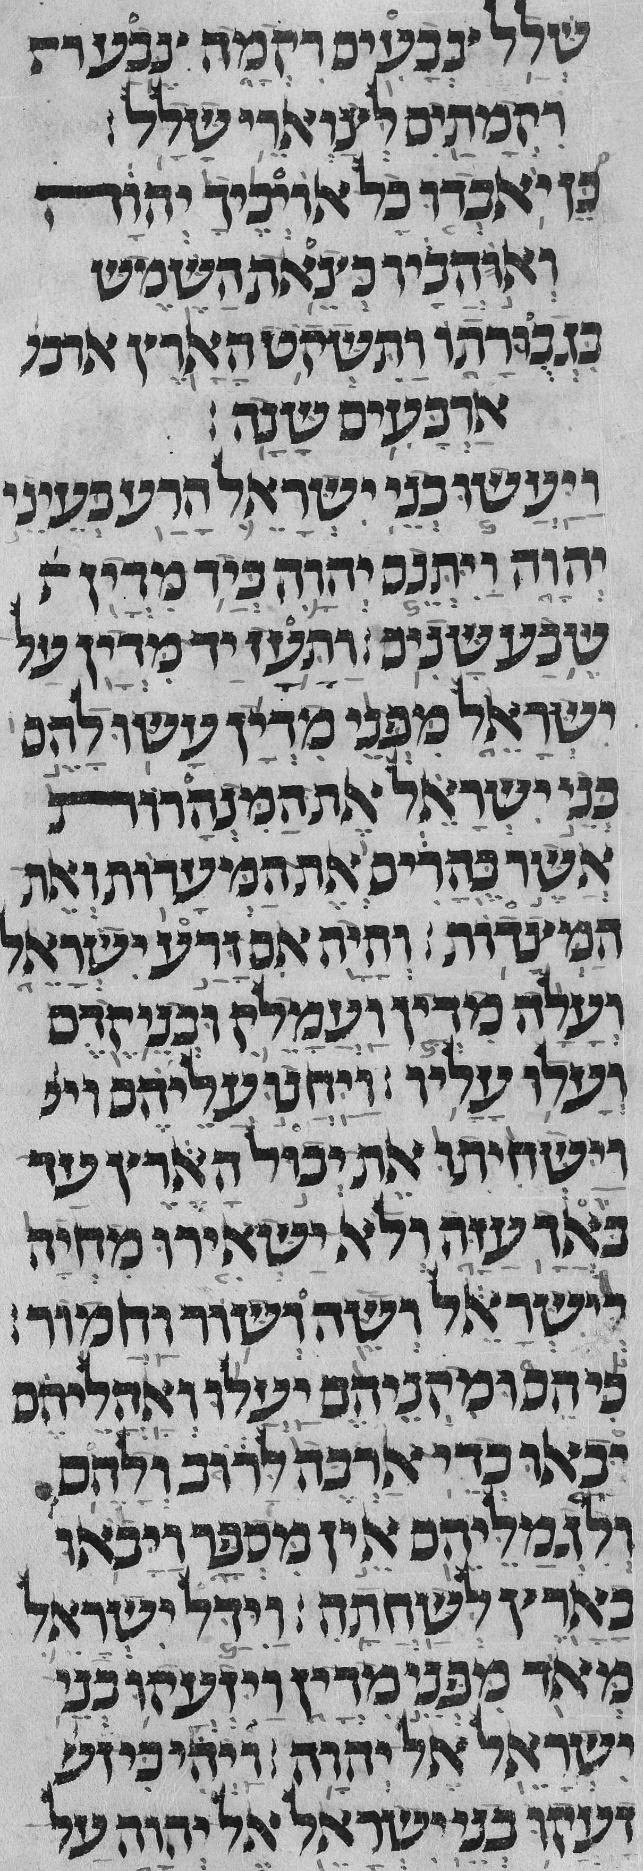 שלל צבעים רקמה צבע
רקמתים לצוארי שלל :
כן יאבדו כל אויביך יהוה
ואהביו כצאת השמש
בגברתו ותשקט הארץ ארב
ארבעים שנה :
ויעשו בני ישראל הרע בעיני
יהוה ויתנם יהוה ביד מדין
שבע שנים : ותעז יד מדין על
ישראל מפני מדין עשו להם
בני ישראל את המנהרות
אשר בהרים את המערות ואת
המצדות : והיה אם זרע ישראל
ועלה מדין ועמלק ובני קדם
ועלו עליו : ויחנו עליהם וי
וישחיתו את יבול הארץ עד
באך עזה ולא ישאירו מחיה
בישראל ושה ושור וחמור :
כי הם ומקניהם יעלו ואהליהם
יבאו כדי ארבה לרוב ולהם
ולגמליהם אין מספר ויבאו
בארץ לשחתה : וידל ישראל
מאד מפני מדין ויזעקו בני
ישראל אל יהוה : ויהי כי זע
זעקו בני ישראל אל יהוה על